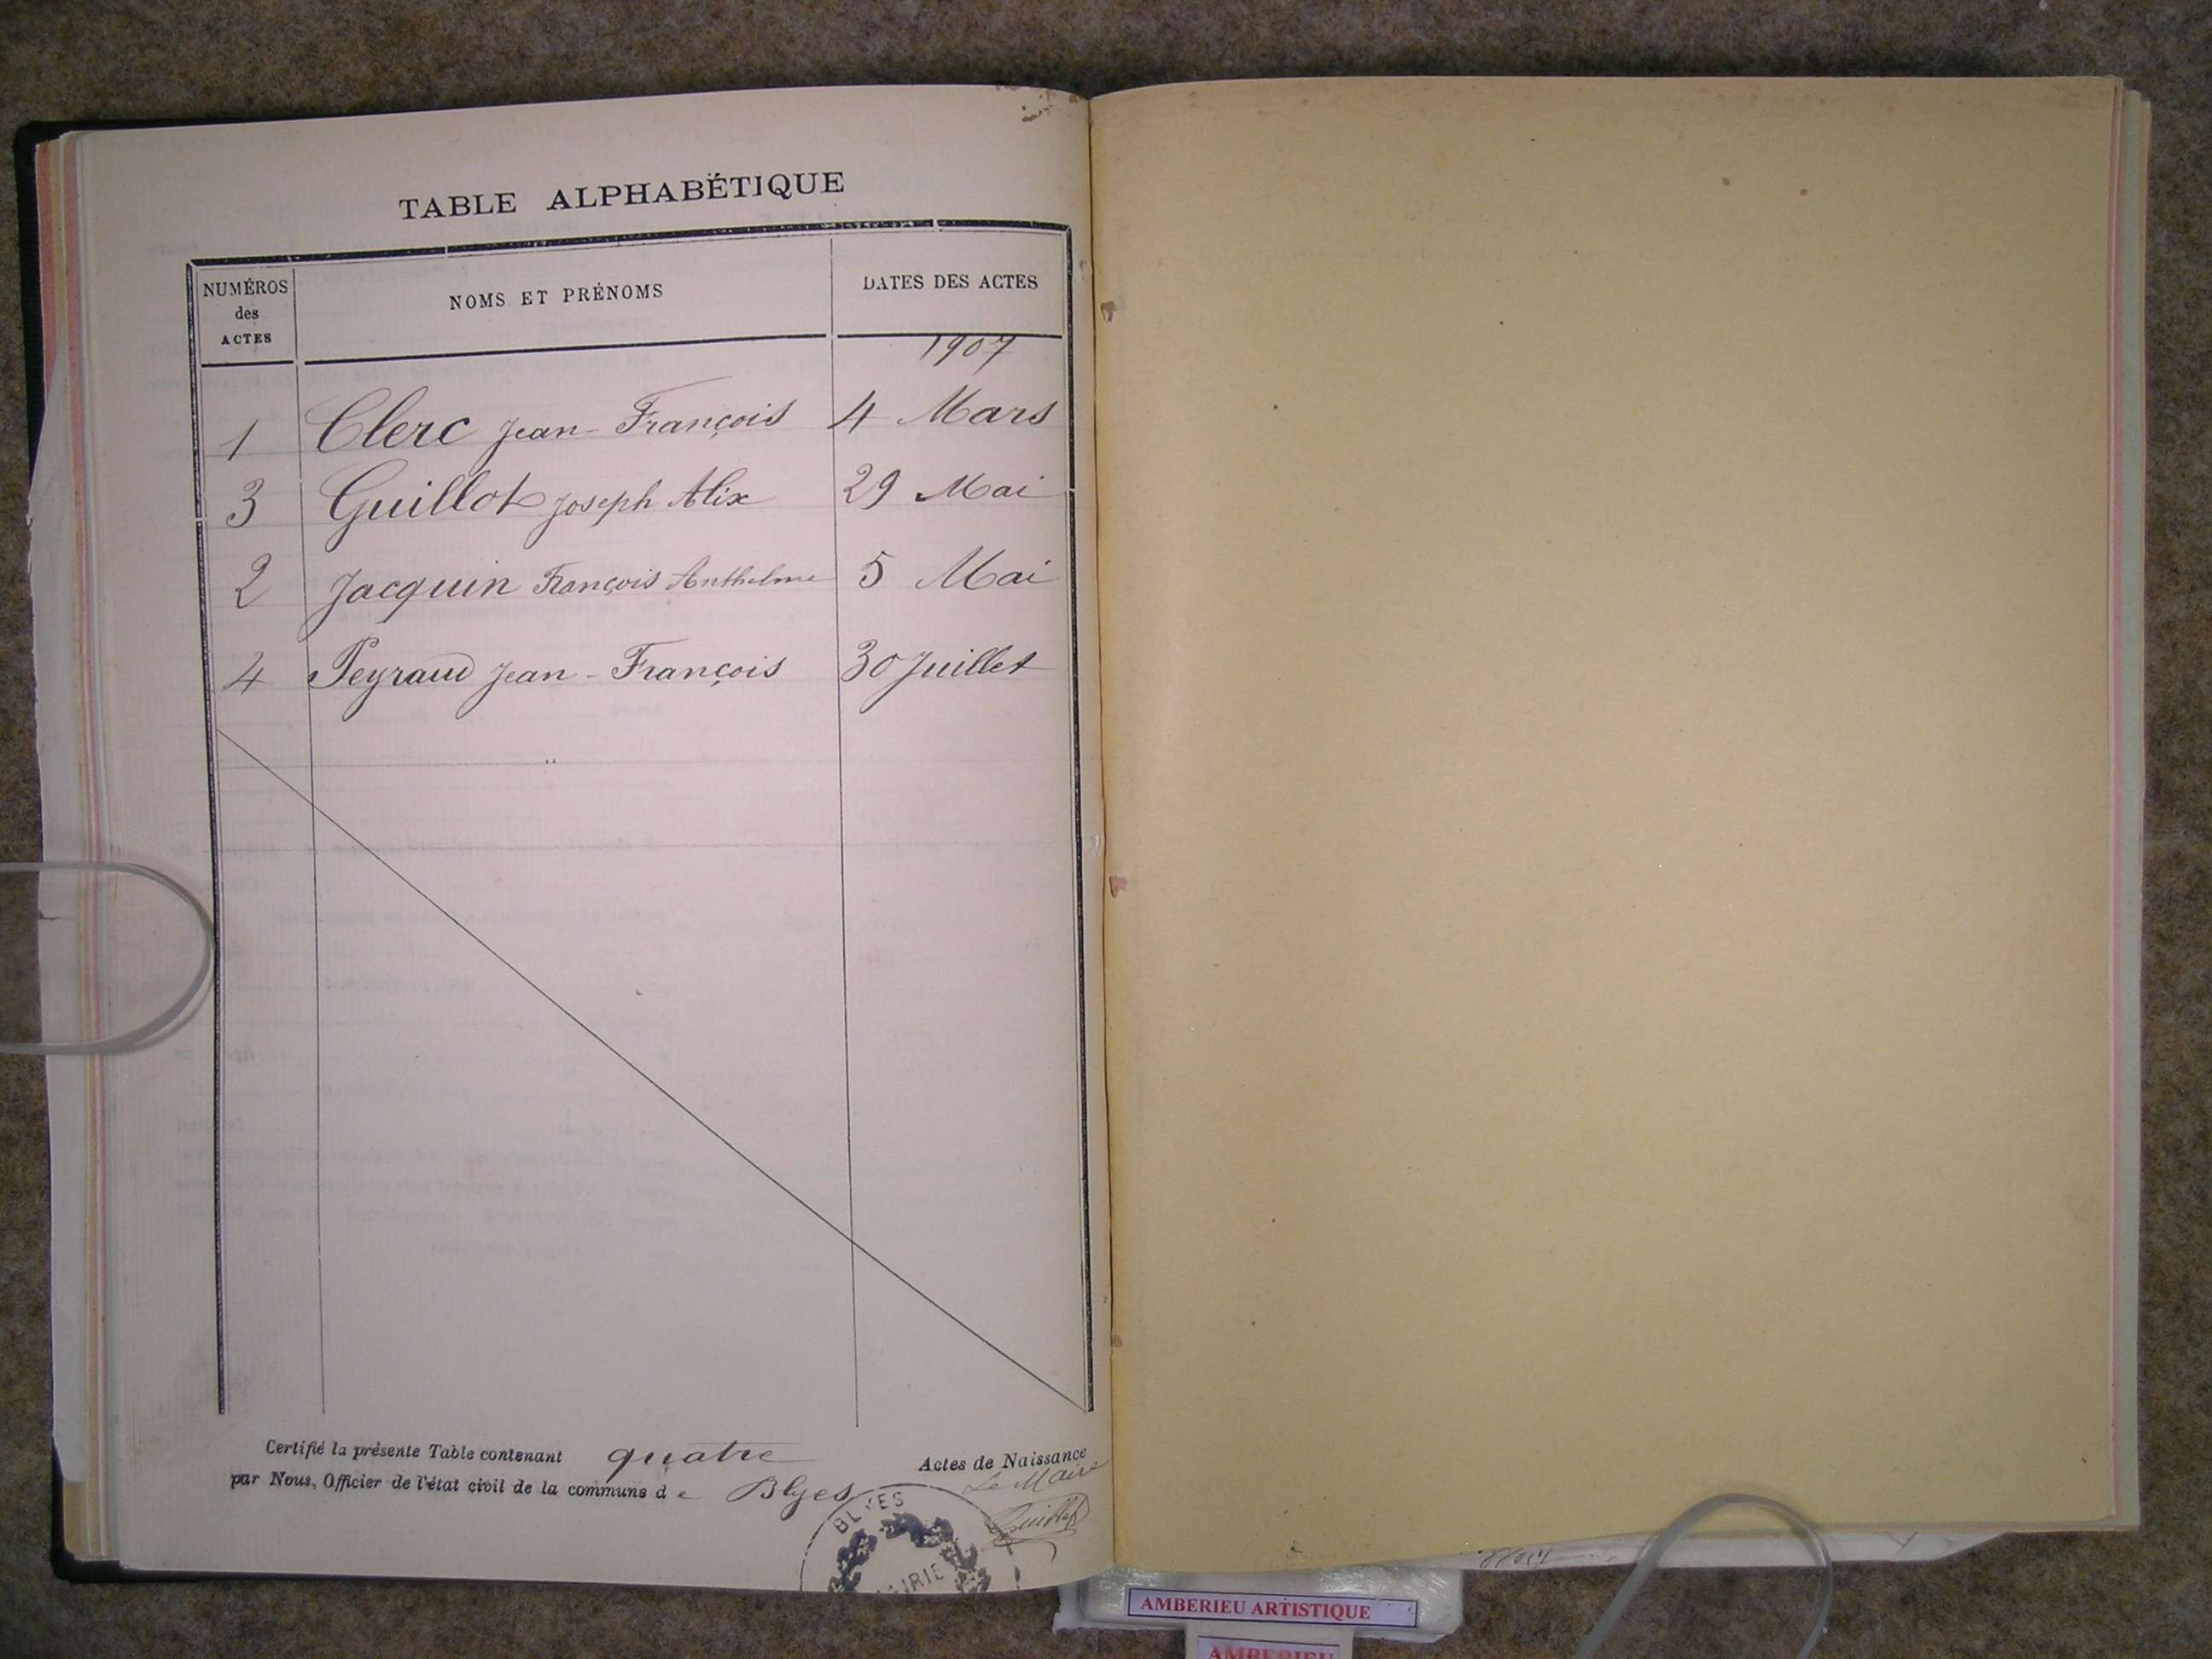 TABLE ALPHABÉTIQUE
NUMÉROS
des
ACTES
NOMS ET PRÉNOMS
DATES DES ACTES
1907
1 Clerc Jean-François 4 Mars
3 Guillot Joseph Alix 29 Mai
2 Jacquin François Anthelme 5 Mai
4 Peyraud Jean-François 30 Juillet
Certifié la présente Table contenant quatre Actes de Naissance
par Nous, Officier de l'état civil de la commune de Blyes
Le Maire
Guillot
BLYES
MAIRIE
AMBERIEU ARTISTIQUE
AMBERIEU